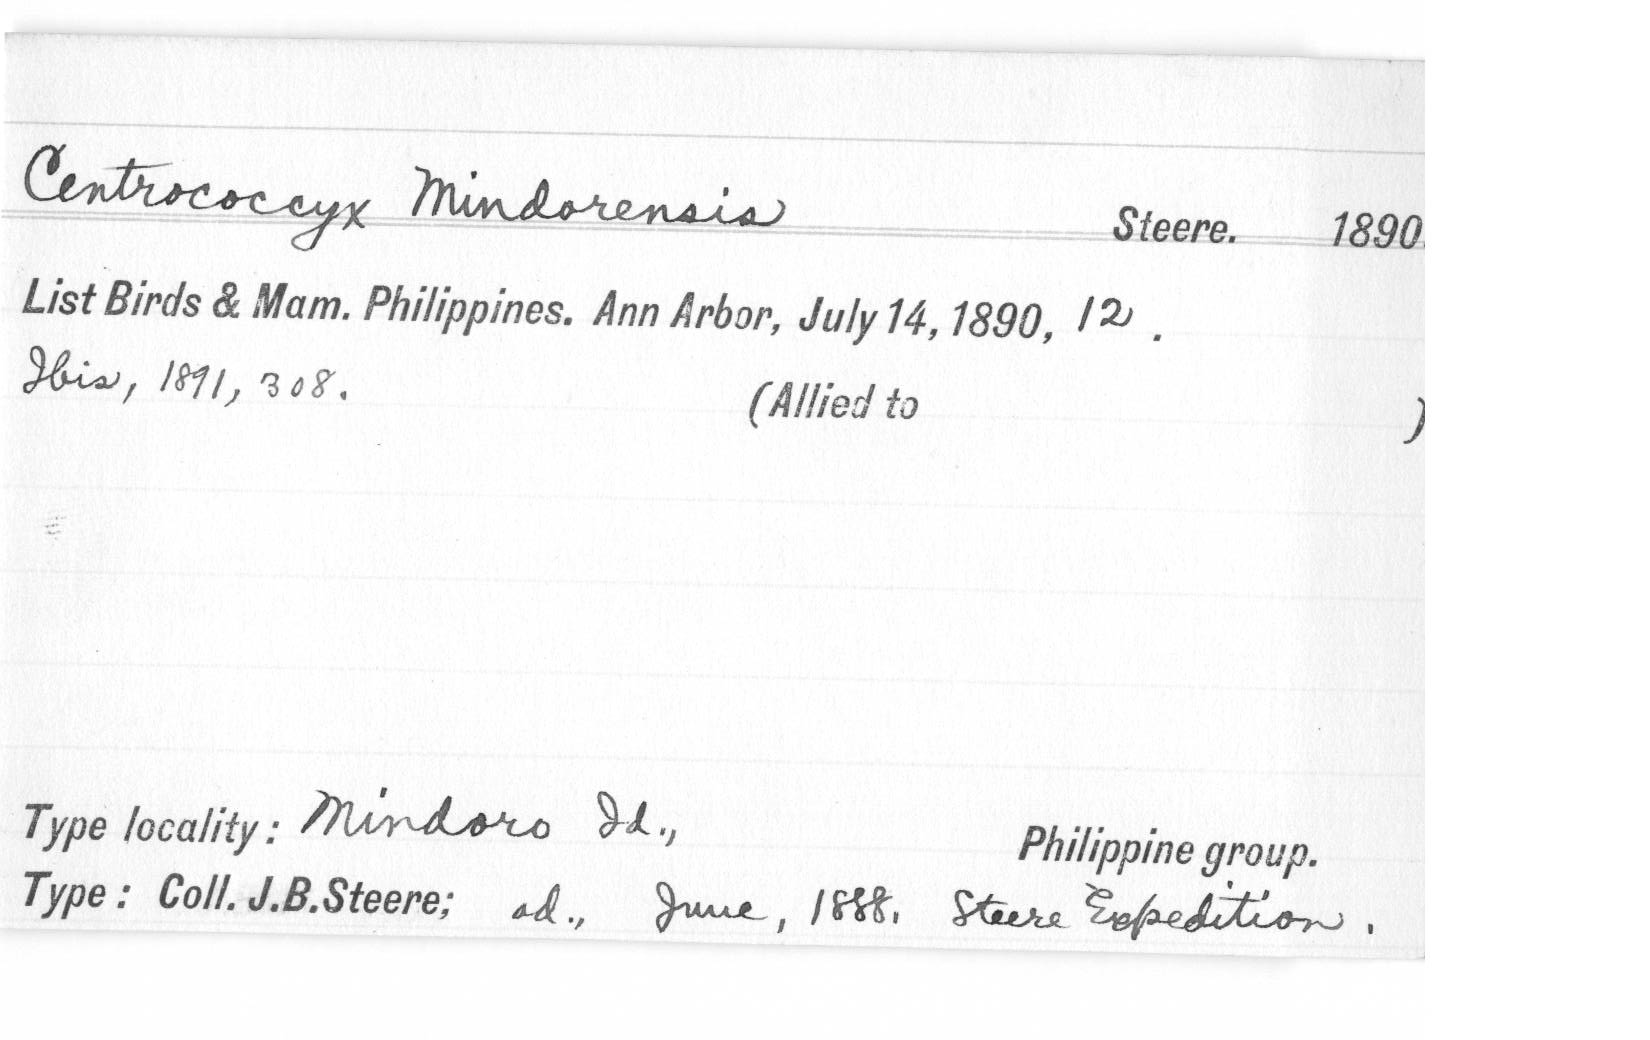 Centrococcyx Mindorensis Steere. 1890.
List Birds & Mam. Philippines. Ann Arbor, July 14, 1890, 12.
Ibis, 1891, 308. (Allied to )
Type locality: Mindoro Id., Philippine group.
Type: Coll. J.B.Steere; ad., June, 1888. Steere Expedition.